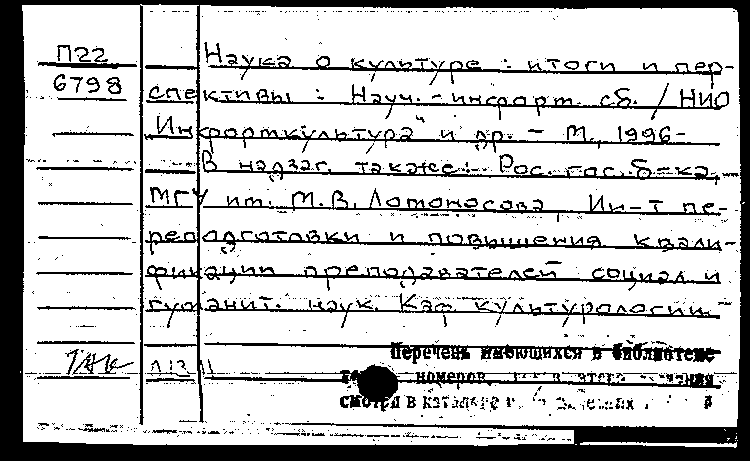 П22
6798
Наука о культуре : итоги и пер-
спективы : Науч.-информ. сб. / НИО
"Информкультура" и др. – М., 1996–
В надзаг. также: Рос. гос. б-ка,
МГУ им. М.В. Ломоносова, Ин-т пе-
реподготовки и повышения квали-
фикации преподавателей социал и
гуманит. наук. Каф культурологии. –
Перечень имеющихся в библиотеке
номеров
смотри в каталоге